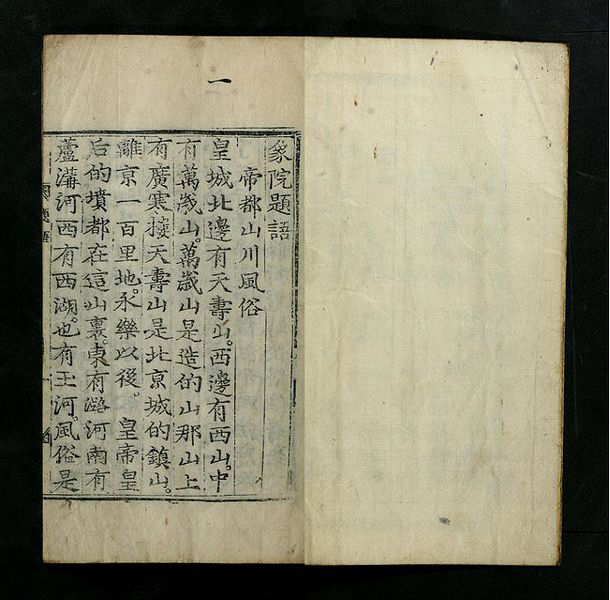 一
象院題語
帝都山川風俗
皇城北邊有天壽山。西邊有西山。中
有萬歲山。萬歲山是造的山那山上
有廣寒殿天壽山是北京城的鎮山。
離京一百里地。永樂以後。皇帝皇
后的墳都在這山裏。東有潞河南有
蘆溝河西有西湖。也有玉河。風俗是